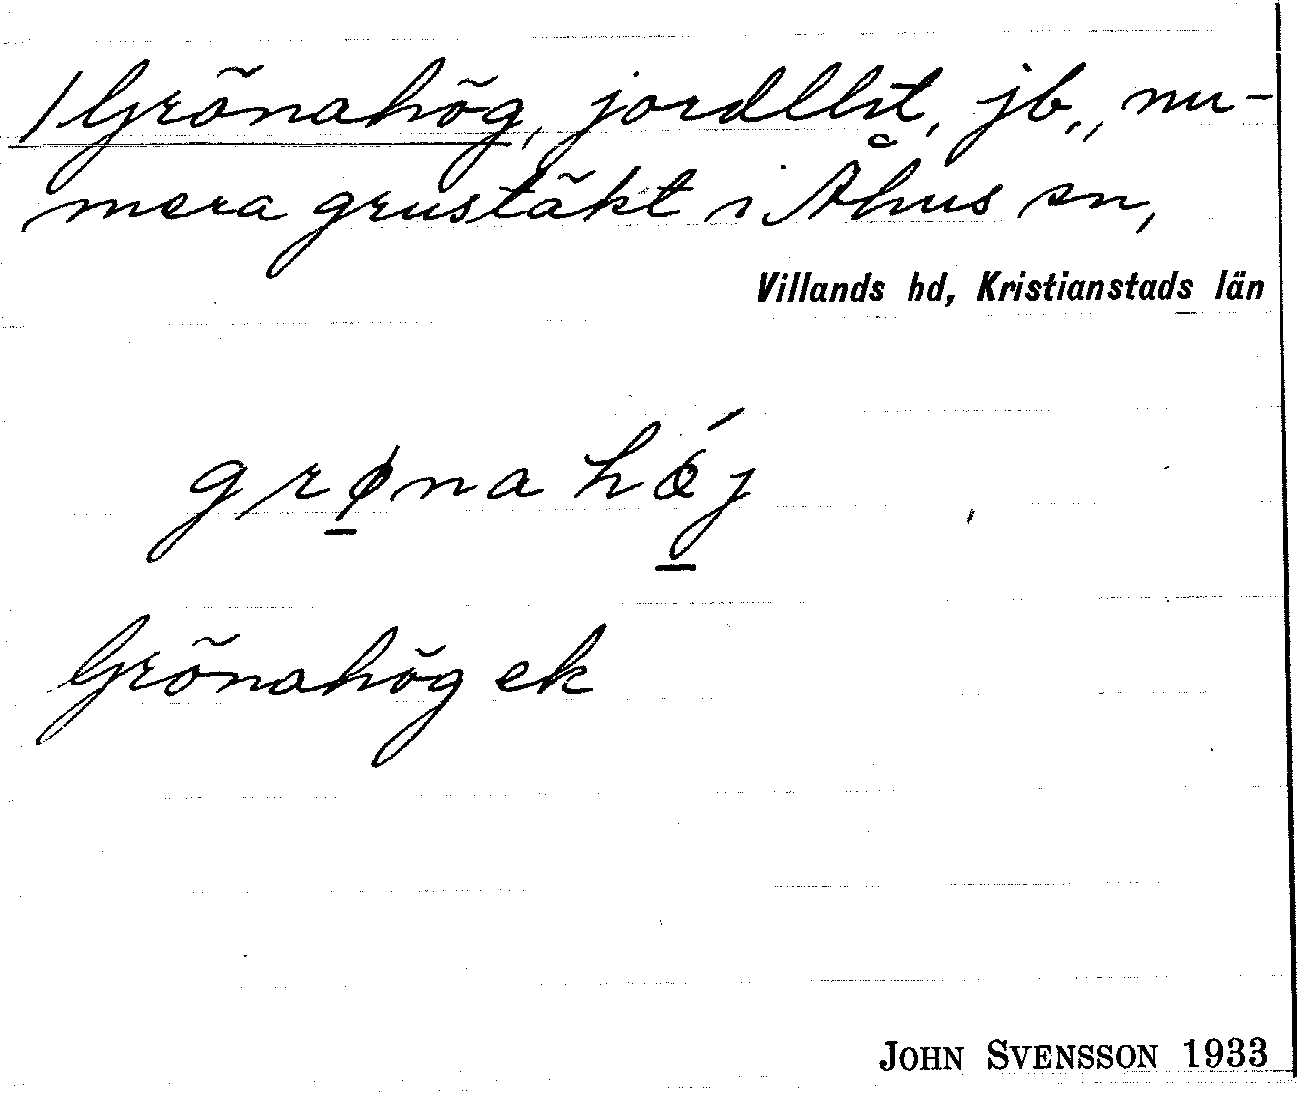 1 Grönahög, jordllht, jb., nu-
mera grustäkt i Åhus sn,
Villands hd, Kristianstads län
grø̱nahǿ̱j
Grönahög ek
JOHN SVENSSON 1933